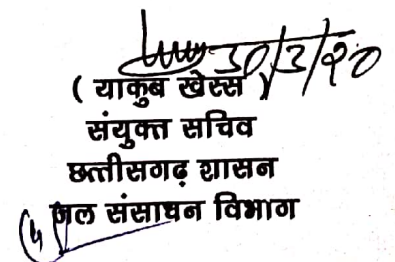 30/3/20
( याकुब खेस्स )
संयुक्त सचिव
छत्तीसगढ़ शासन
जल संसाधन विभाग